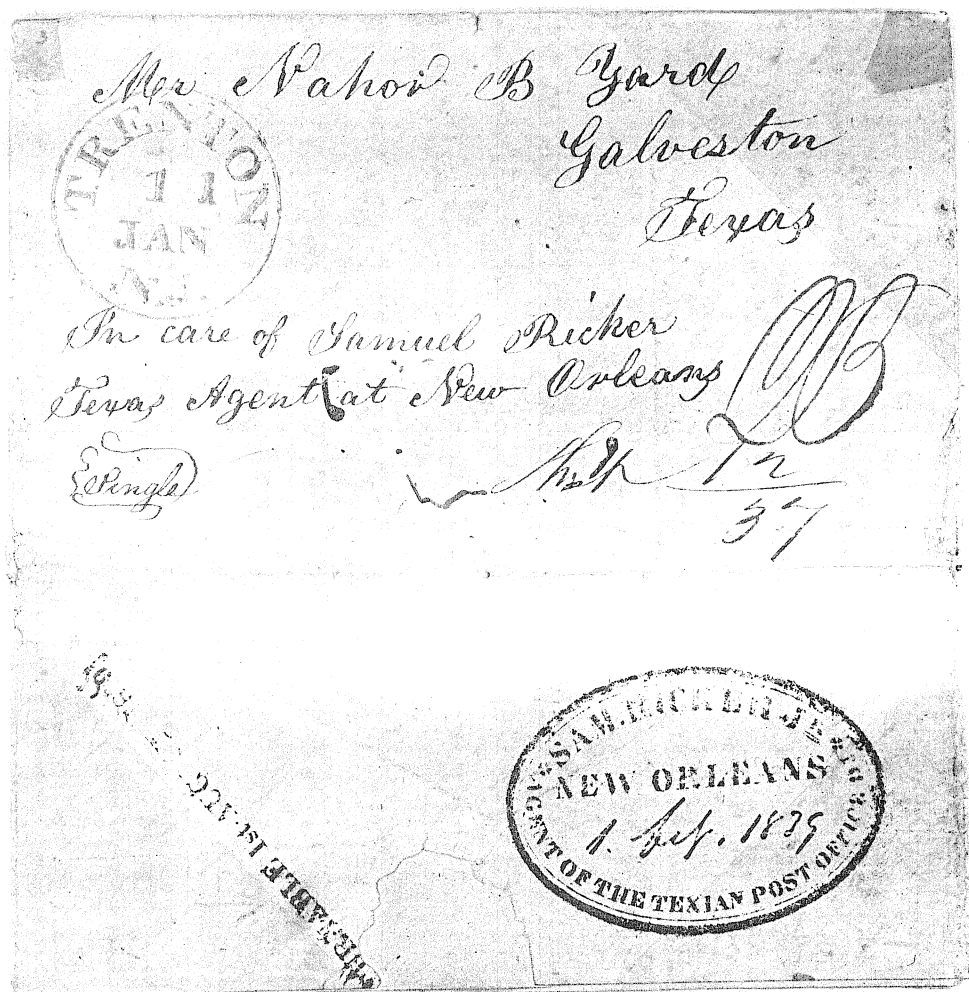 Mr Nahor B Yard
Galveston
Texas
TRENTON
11
JAN
N.J.
In care of Samuel Ricker
Texas Agent at New Orleans
Single
Ship 12
37
SAM. RICKER JR
NEW ORLEANS
1. 1839
AGENT OF THE TEXIAN POST OFFICE DPT
1st AUG